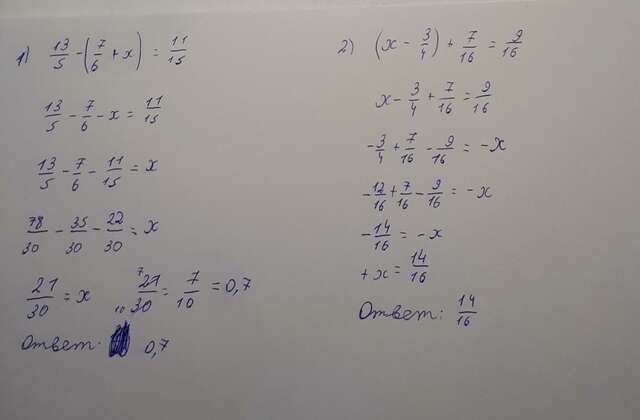 1) 13/5 - (7/6 + x) = 11/15
13/5 - 7/6 - x = 11/15
13/5 - 7/6 - 11/15 = x
78/30 - 35/30 - 22/30 = x
21/30 = x 21/30 = 7/10 = 0,7
Ответ: 0,7
2) (x - 3/4) + 7/16 = 9/16
x - 3/4 + 7/16 = 9/16
-3/4 + 7/16 - 9/16 = -x
-12/16 + 7/16 - 9/16 = -x
-14/16 = -x
+x = 14/16
Ответ: 14/16